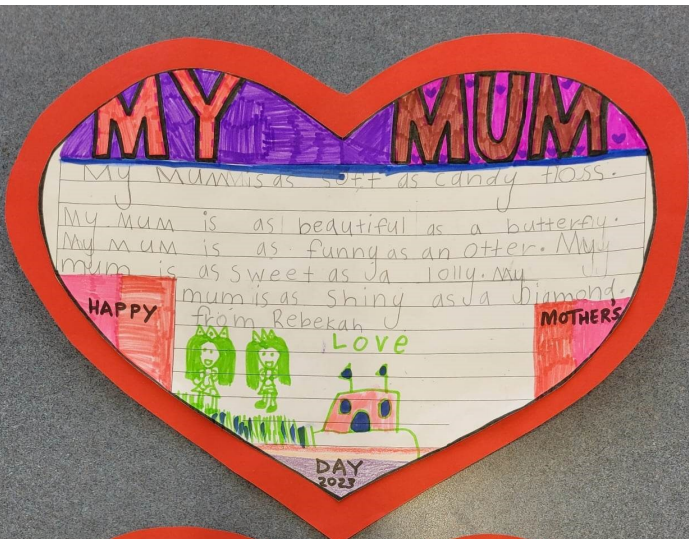 MY MUM
My Mum is as soft as candy floss.
My Mum is as beautiful as a butterfly.
My mum is as funny as an otter. My
mum is as sweet as a lolly. My
mum is as shiny as a Diamond.
from Rebekah
HAPPY
MOTHER'S
Love
DAY
2023